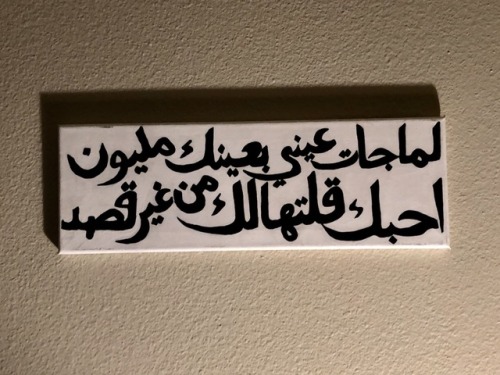 لما جات عيني بعينك مليون
احبك قلتها لك من غير قصد